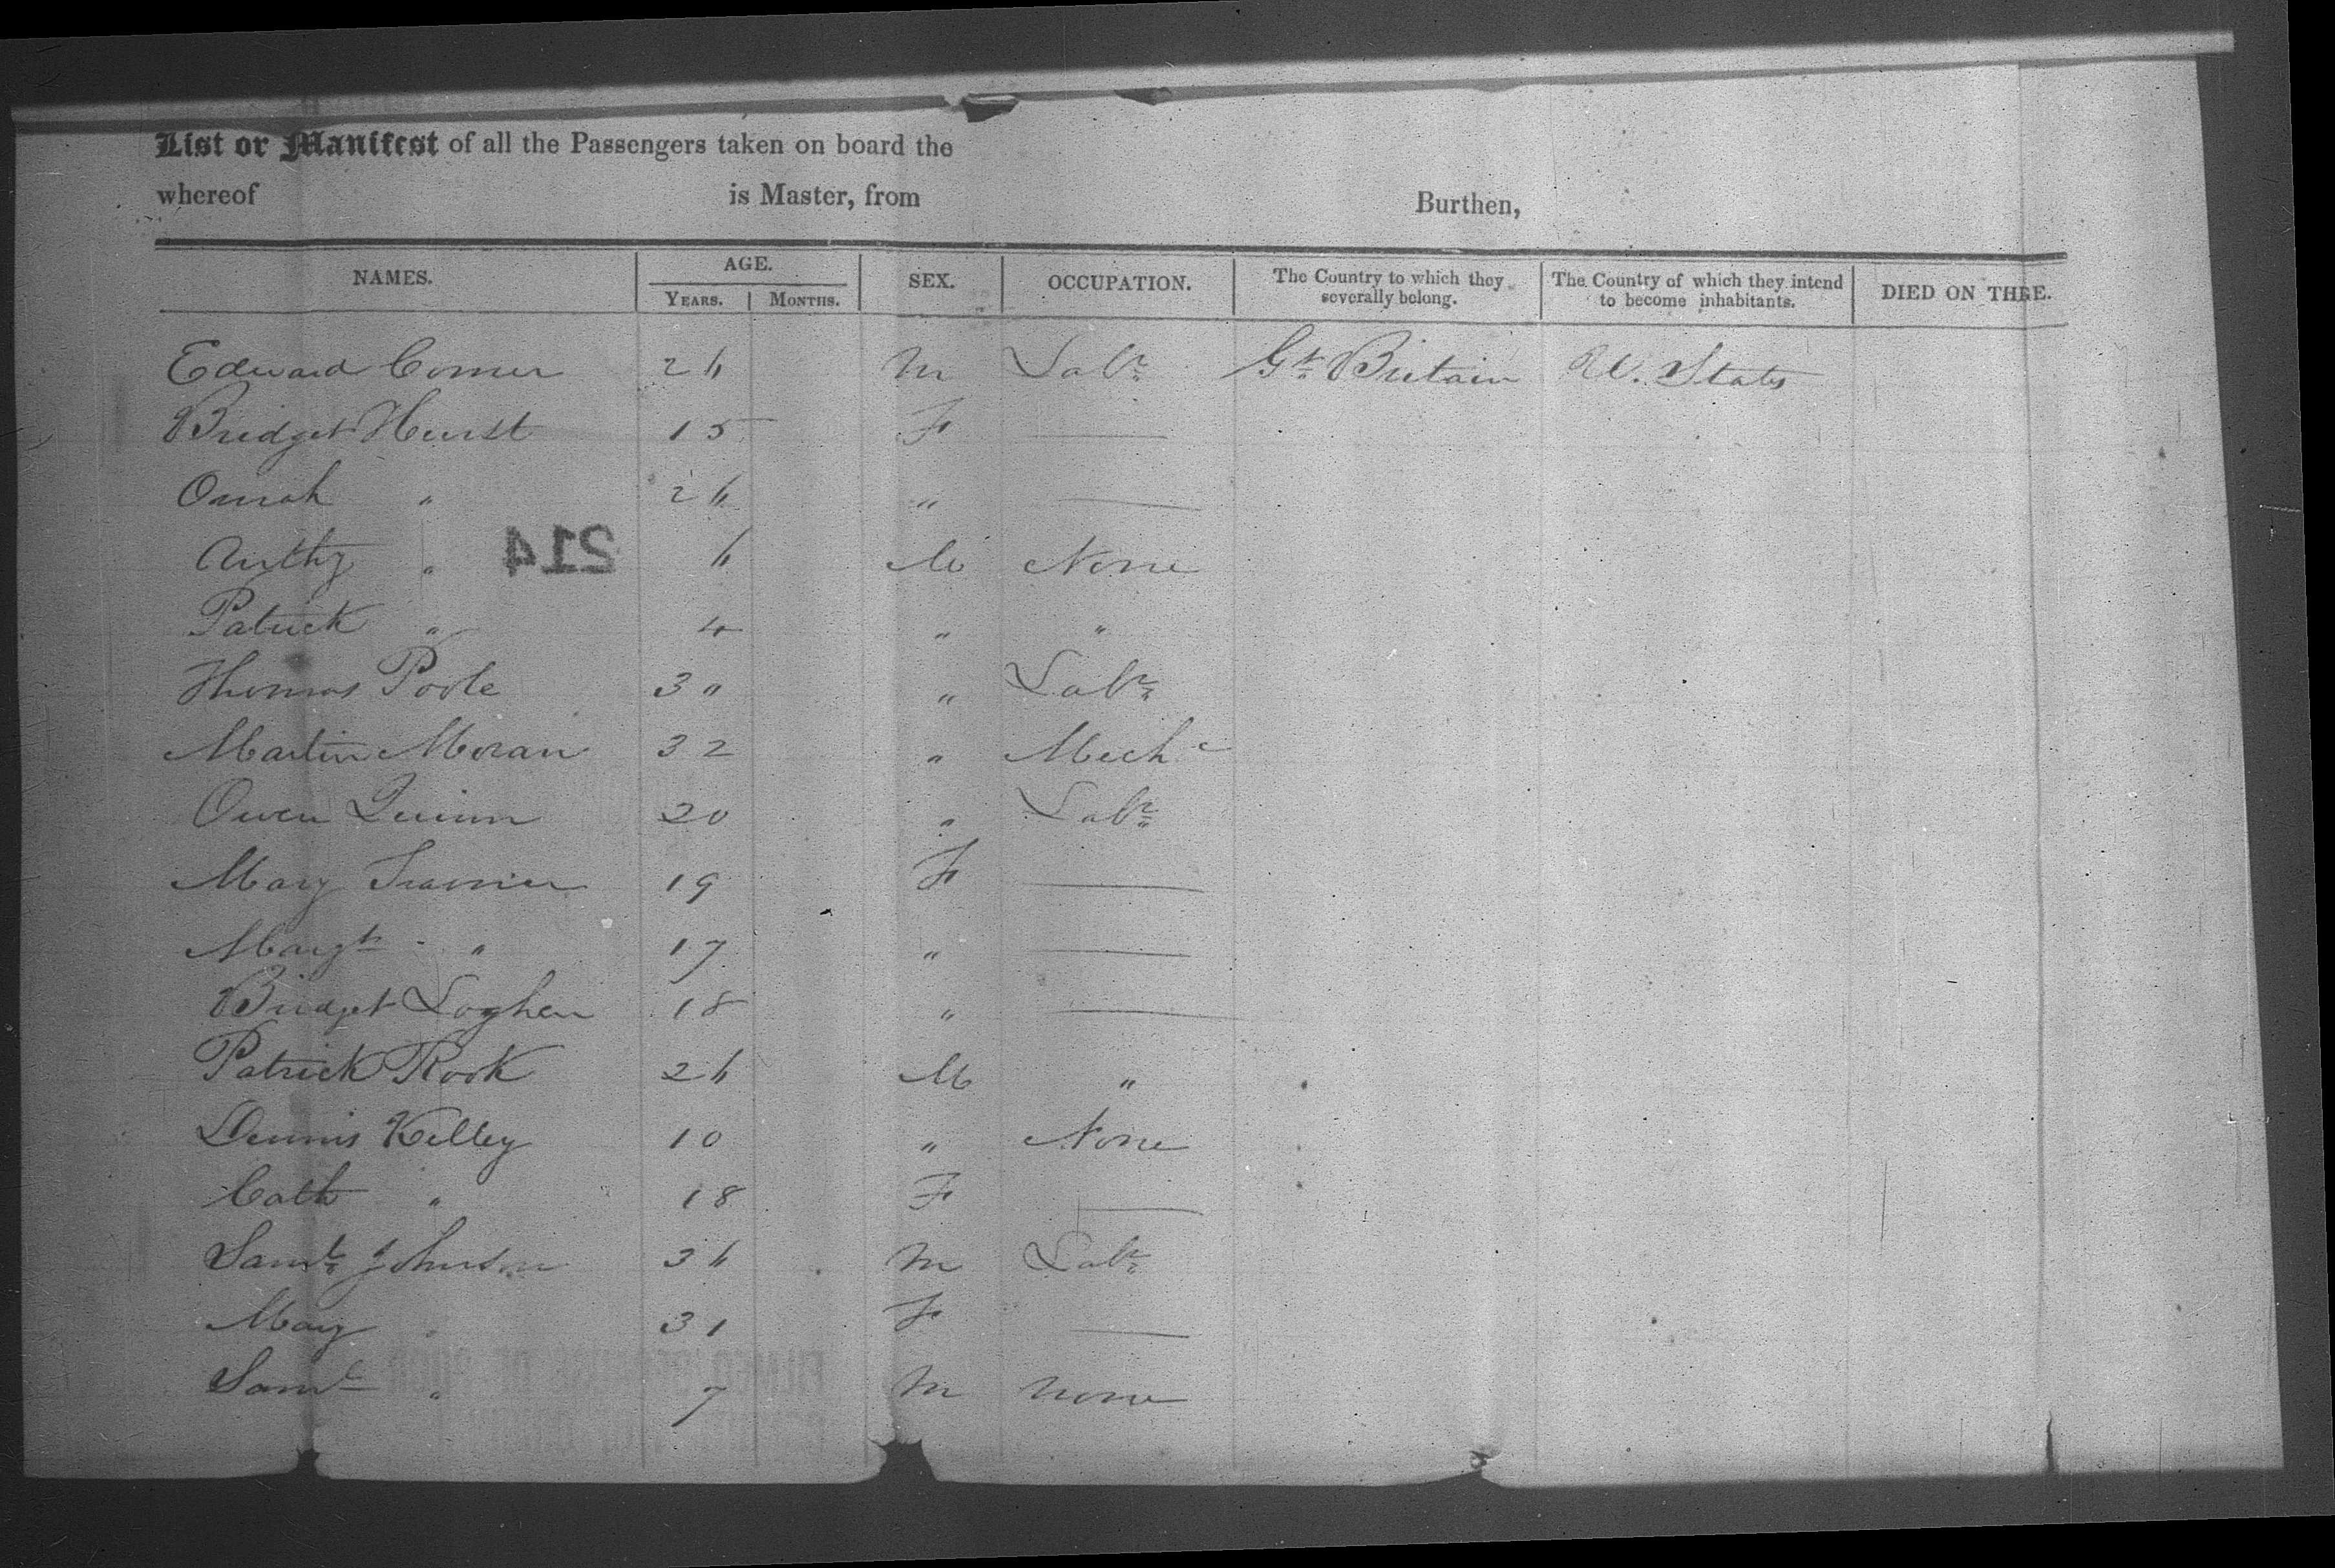 List or Manifest of all the Passengers taken on board the
whereof is Master, from Burthen,
NAMES. AGE. SEX. OCCUPATION. The Country to which they severally belong. The Country of which they intend to become inhabitants. DIED ON THE E.
YEARS. MONTHS.
Edward Comer 26 M Labr Gt Britain U. States
Bridget Hurst 15 F —
" 26 " —
Anthy " 6 M None
Patrick " 4 " "
214
Thomas Poole 30 " Labr
Martin Moran 32 " Mechc
Owen Quinn 20 " Labr
Mary 19 F —
Margt " 17 " —
Bridget Loghen 18 " —
Patrick Rook 26 M "
Dennis Kelley 10 " None
Cath " 18 F —
Saml Johnson 36 M Labr
Mary " 31 F —
Saml " 7 M none